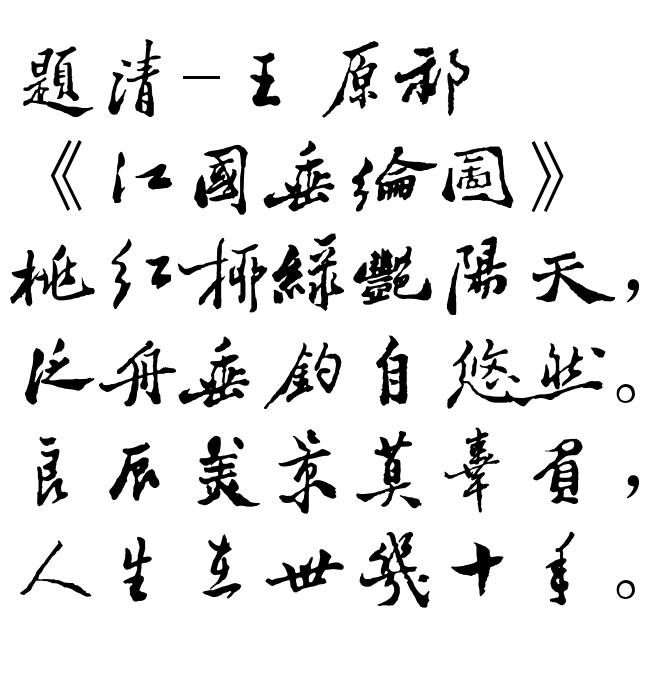 題清一王原祁
《江國垂綸圖》
桃紅柳綠艷陽天，
泛舟垂釣自悠然。
良辰美景莫辜負，
人生在世幾十年。